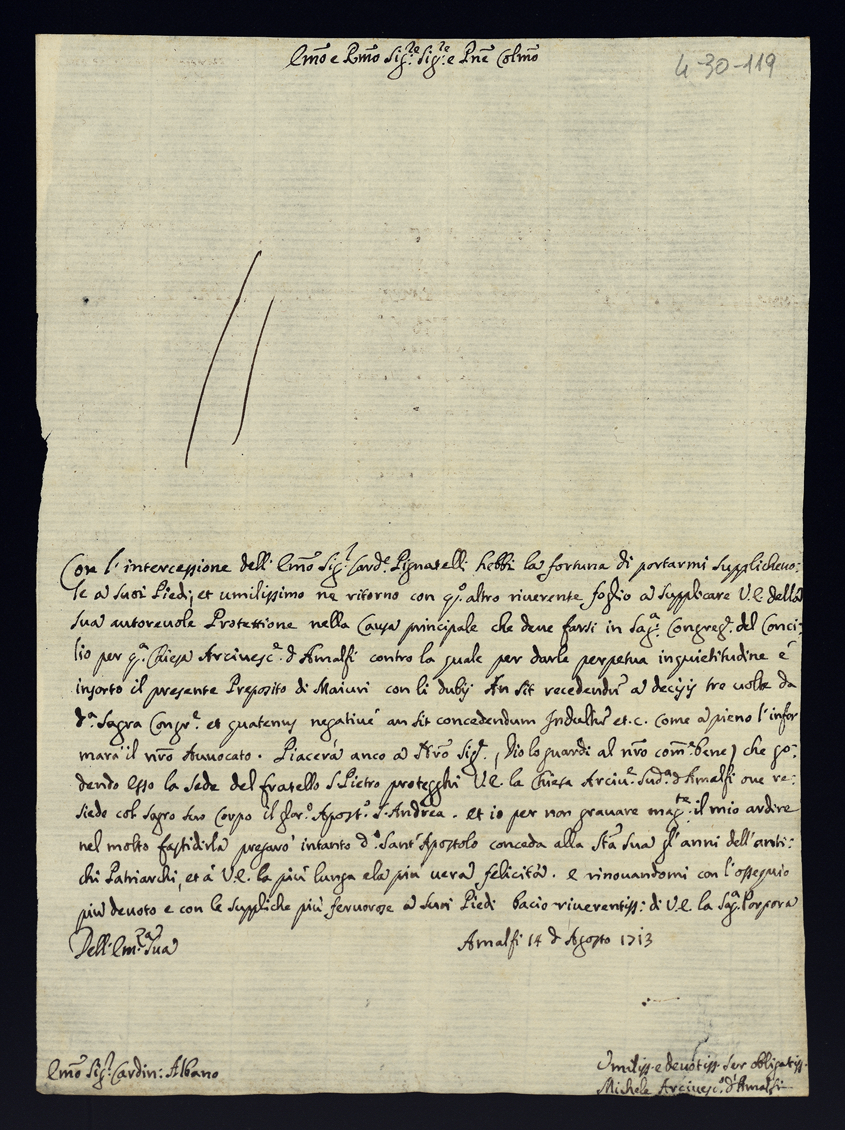 Em̃o e Rm̃o Sig:re Sig:re e Pñe Colm̃o
4-30-119
Con l'intercessione dell' Em̃o Sig.r Card.e Pignatelli hebbi la fortuna di portarmi supplicheuo:
le a suoi Piedi, et umilissimo ne ritorno con q.o altro riverente foglio a supplicare V.E. della
sua autoreuole Protettione nella Causa principale che deue farsi in Sag.a Congreg.e del Conci:
lio per q.a Chiesa Arciuesc.e d'Amalfi contro la quale per darle perpetua inquietitudine è
insorto il presente Preposito di Maiuri con li dubij An sit recedendũ a decisis tre uolte da
d.a Sagra Congr.e et quatenus negatiuè an sit concedendum Indultũ et.c. come a pieno l'infor
marà il ñro Auuocato. Piacerà anco a Ñro Sig.re (Dio lo guardi al ñro com.e bene) che go:
dendo esso la Sede del fratello S. Pietro protegghi V.E. la Chiesa Arciu.e sud.a d'Amalfi oue re:
siede col sagro suo Corpo il glor.o Apost.o S. Andrea. et io per non grauare mag.te il mio ardire
nel molto fastidirla pregarò intanto d.o Sant'Apostolo conceda alla St̃a Sua gl'anni dell'anti:
chi Patriarchi, et à V.E. la più lunga e la più uera felicità. e rinouandomi con l'ossequio
più deuoto e con le suppliche più feruorose a suoi Piedi bacio riuerentiss: di V.E. la Sag.a Porpora
Dell'Em.za Sua
Amalfi 14 d'Agosto 1713
Em̃o Sig.r Cardin: Albano
Umiliss. e deuotiss. ser obligatiss.
Michele Arciuesc.o d'Amalfi